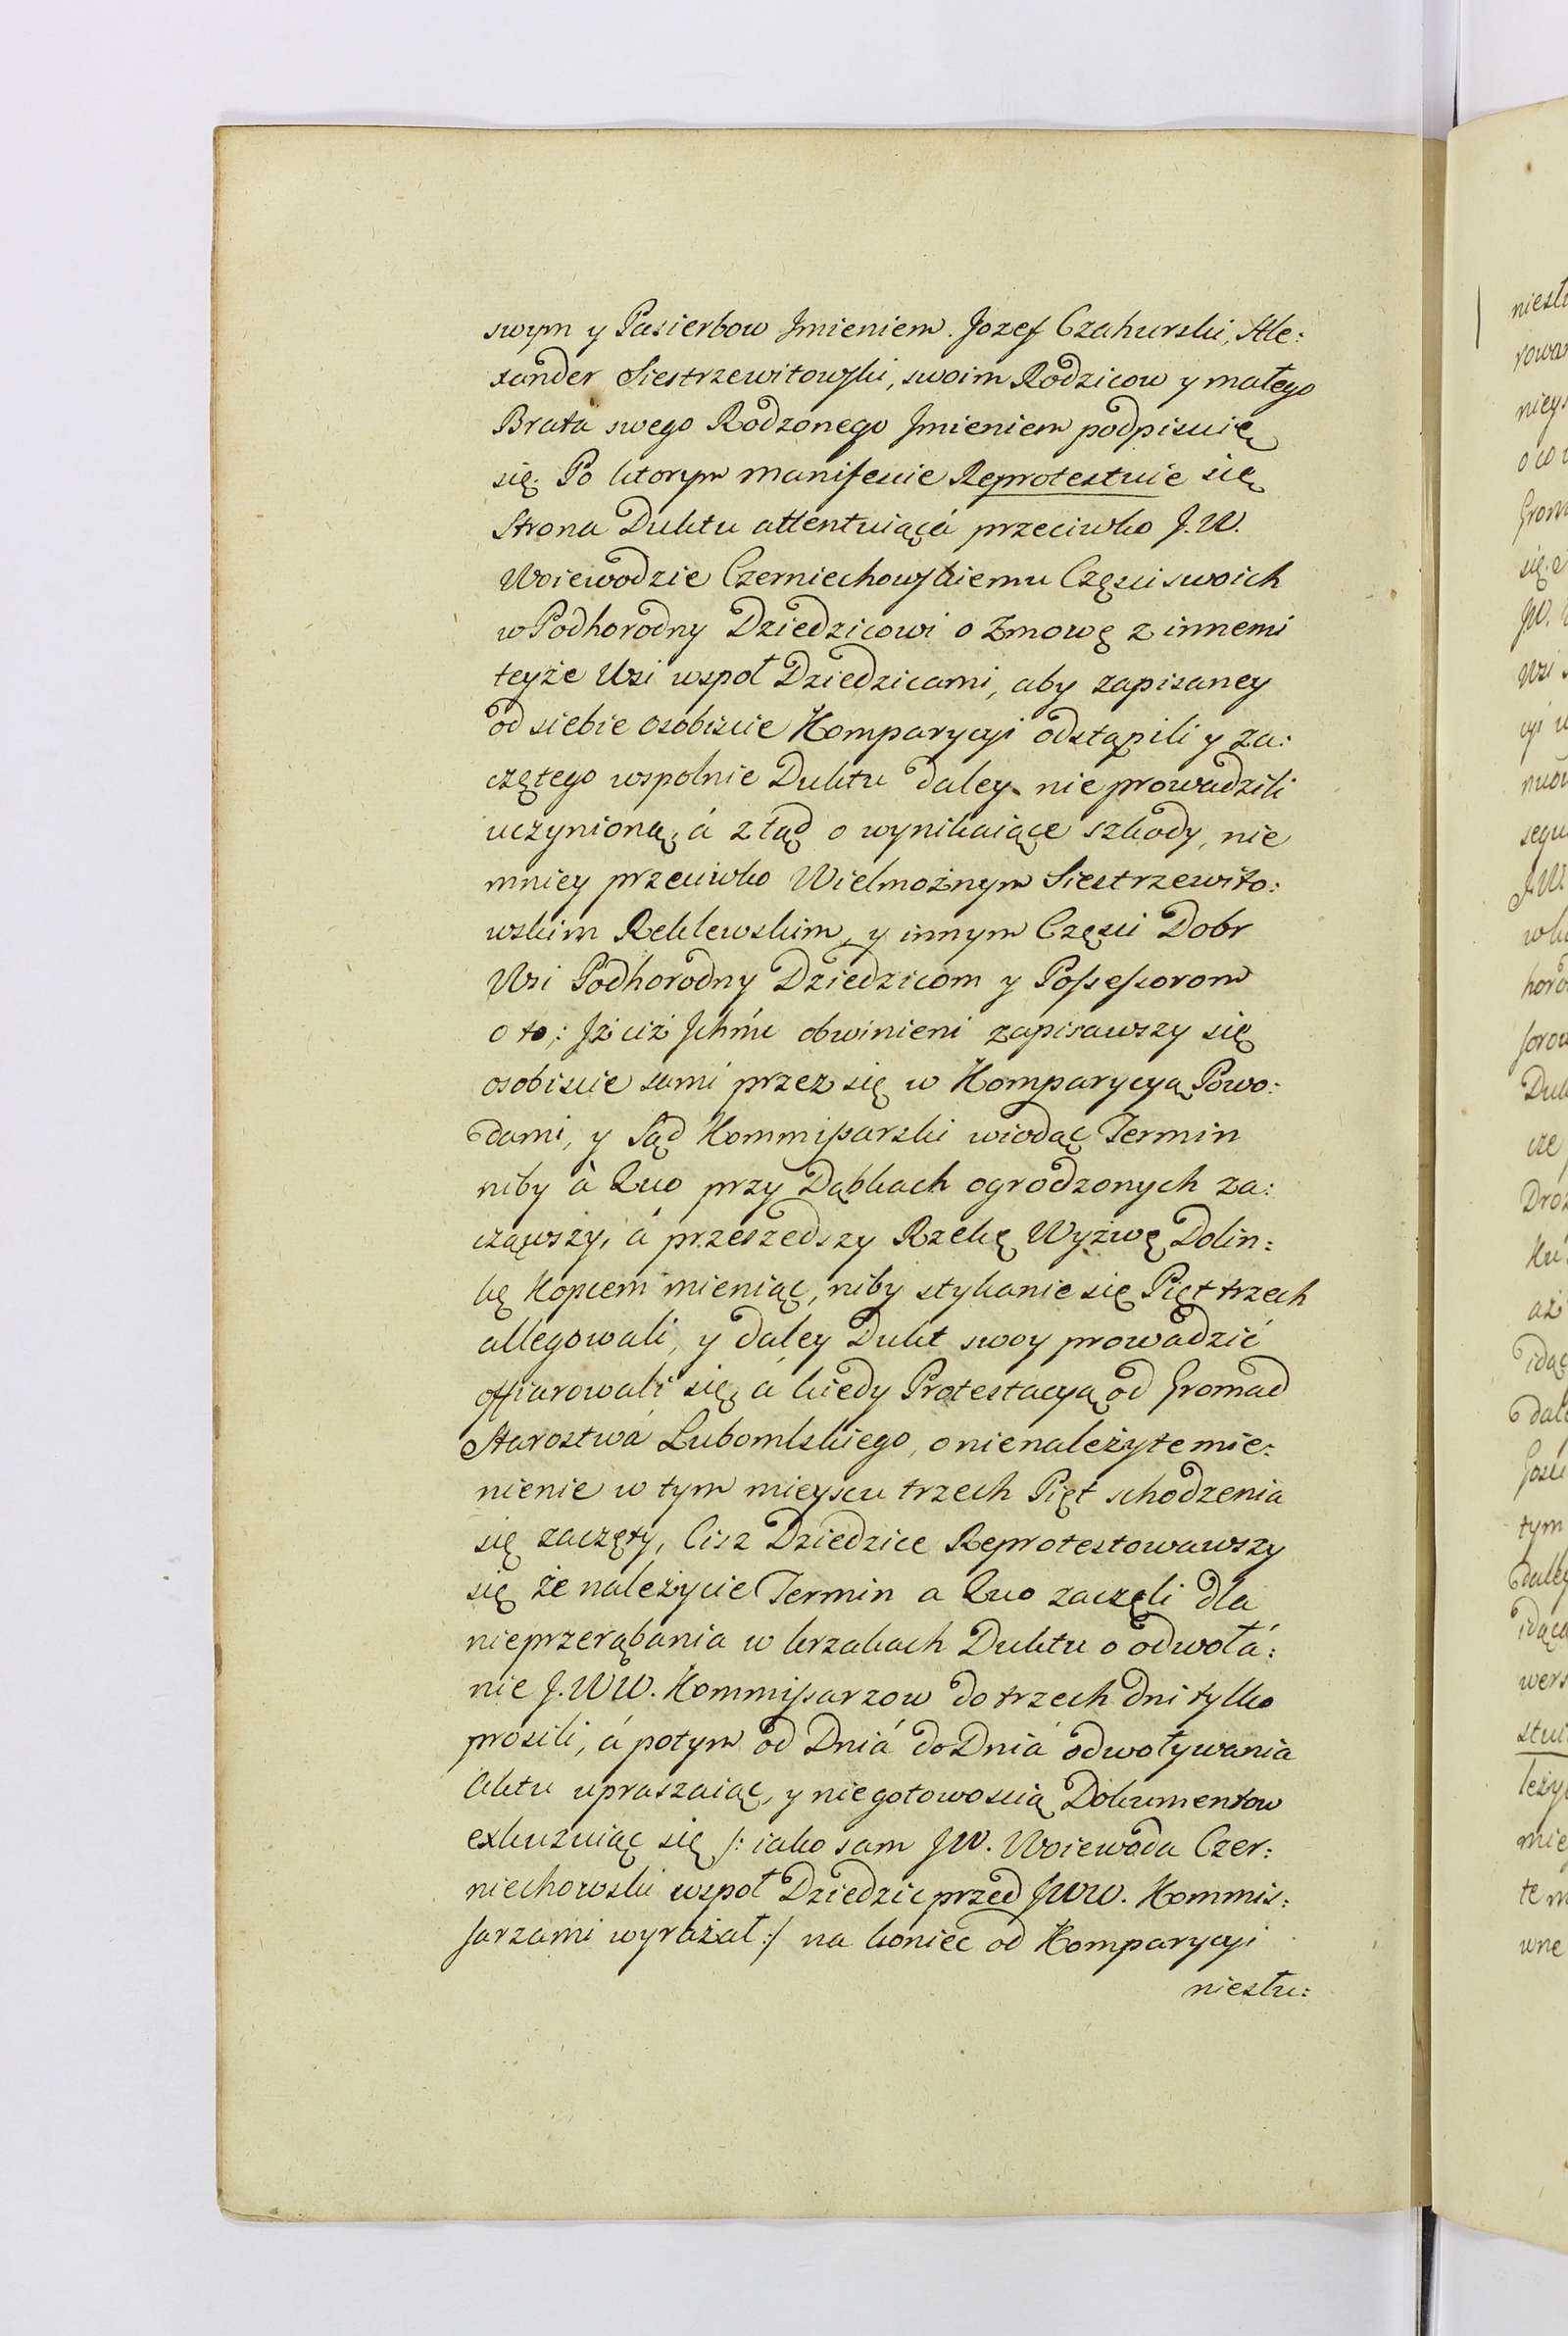 swym y Pasierbow Jmieniem. Jozef Czahurski, Ale:
xander Siestrzewitowski, swoim Rodzicow y małego
Brata swego Rodzonego Jmieniem podpisuię
się. Po ktorym Manifescie Reprotestuie się
Strona Duktu attentuiącá przeciwko J. W.
Woiewodzie Czerniechowskiemu Częsci swoich
w Podhorodny Dziedzicowi o Zmowę z innemi
teyże Wsi wspoł Dziedzicami, aby zapisaney
od siebie osobiscie Komparycyi odstąpili y za:
czętego wspolnie Duktu daley nie prowadzili
uczynioną, á ztąd o wynikaiące szkody, nie
mniey przeciwko Wielmożnym Siestrzewito:
wskim Reklewskim, y innym Częsci Dobr
Wsi Podhorodny Dziedzicom y Possessorom
o to; Jż ciż Jchmc obwinieni zapisawszy się
osobiscie sami przez się w Komparycyą Powo:
dami, y Sąd Kommissarski wiodąc Termin
niby à Quo przy Dąbkach ogrodzonych za:
cząwszy, á przeszedszy Rzekę Wyżwę Dolin:
kę Kopcem mieniąc, niby stykanie się Pięt trzech
allegowali, y daley Dukt swoy prowadzić
offiarowali się, á kiedy Protestacyą od Gromad
Starostwá Lubomlskiego, o nienależyte mie:
nienie w tym mieyscu trzech Pięt schodzenia
się zaczęty, Cisz Dziedzice Reprotestowawszy
się że należycie Termin a Quo zaczęli dla
nieprzerąbania w krzakach Duktu o odwołá:
nie J. WW. Kommissarzow do trzech dni tylko
prosili, á potym od Dniá do Dniá odwoływania
Aktu upraszaiąc, y niegotowoscią Dokumentow
exkuzuiąc się /: iako sam JW. Woiewoda Czer:
niechowski wspoł Dziedzic przed JWW. Kommis:
sarzami wyrażał :/ na koniec od Komparycyi
niestu: